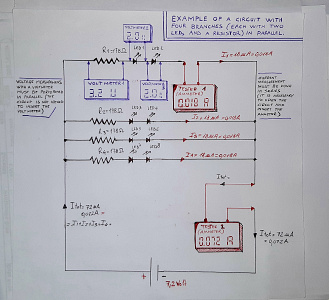 EXAMPLE OF A CIRCUIT WITH
FOUR BRANCHES (EACH WITH TWO
LEDs AND A RESISTOR) IN PARALLEL.
VOLTMETER 2
2.0 V
R1=178Ω
LED1
LED2
I1=18mA=0,018A
VOLTAGE MEASUREMENTS
MUST BE PERFORMED
IN PARALLEL (THE
CIRCUIT IS NOT OPENED
TO INSERT THE
VOLTMETER)
VOLTMETER 1
3.2 V
VOLTMETER 3
2.0 V
TESTER 1
(AMMETER)
0.018 A
CURRENT
MEASUREMENT
MUST BE DONE
IN SERIES
(IT IS NECESSARY
TO OPEN THE
CIRCUIT AND
INSERT THE
AMMETER)
R2=178Ω
I2=18mA=0,018A
R3=178Ω
I3=18mA=0,018A
R4=178Ω
I4=18mA=0,018A
Itot=72mA
0,072A
=I1+I2+I3+I4
TESTER 2
(AMMETER)
0.072 A
Itot=72mA
=0,072A
+ -
7,2 Volt